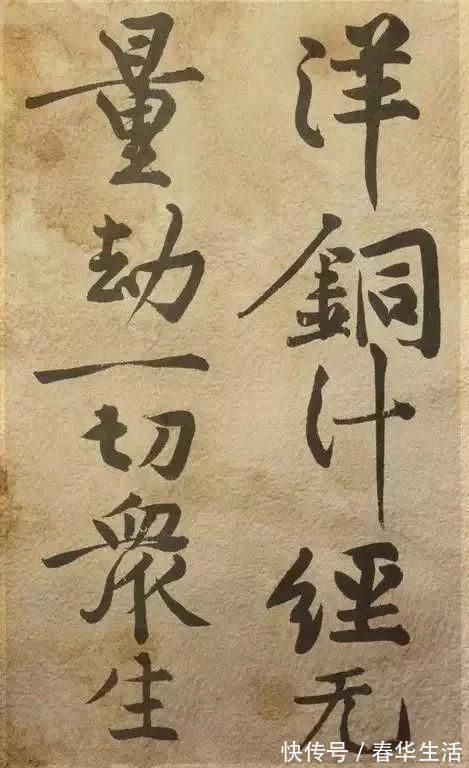 洋銅汁經无
量劫一切衆生
快传号/春华生活